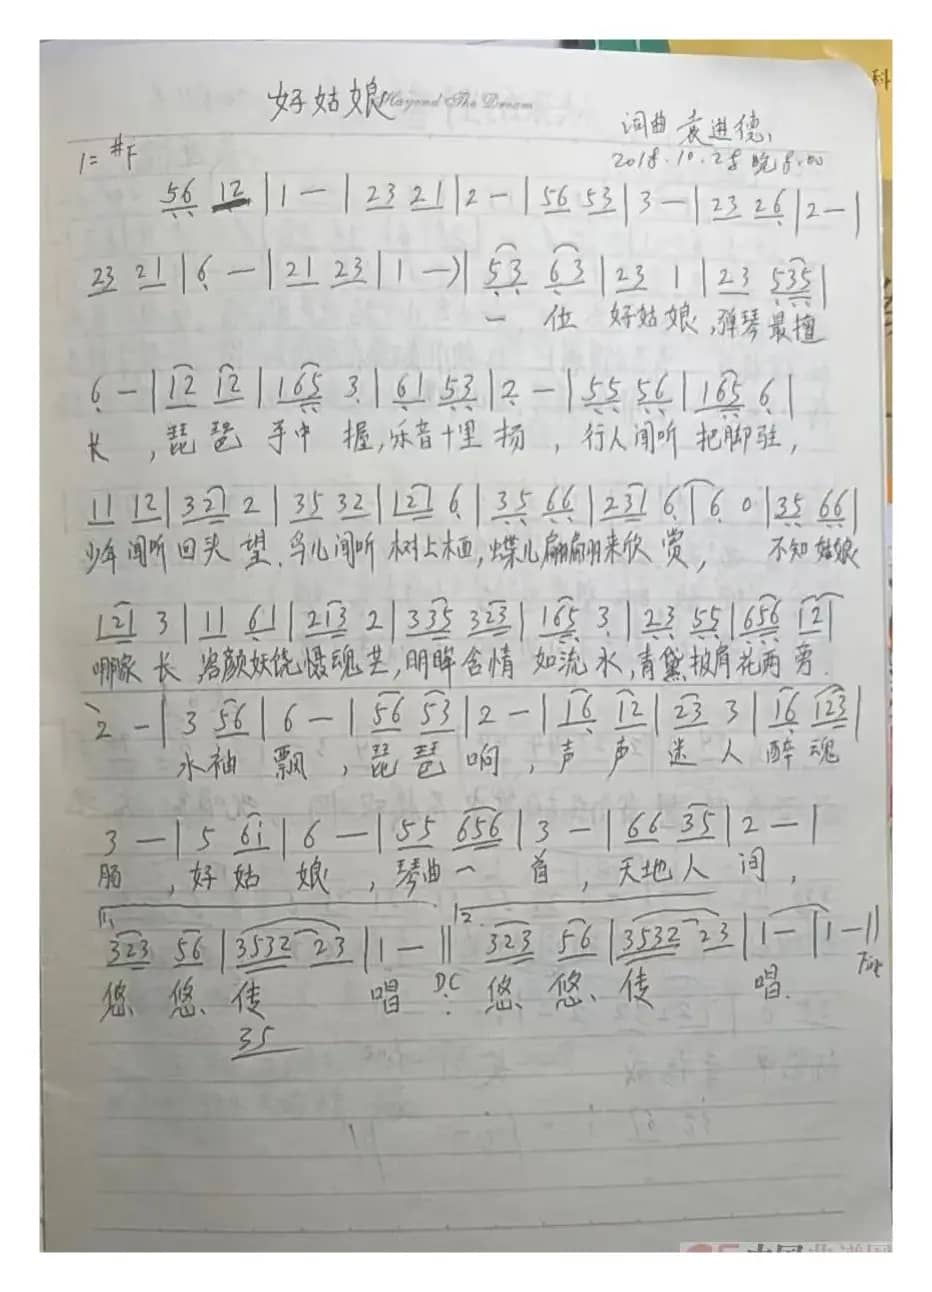 好姑娘 Beyond The Dream
词曲 袁进德
1=#F
2018.10.28晚8.00
56 12 | 1 — | 23 21 | 2 — | 56 53 | 3 — | 23 26 | 2 — |
23 21 | 6 — | 21 23 | 1 —) | 53 63 | 23 1 | 23 535 |
一 位 好姑娘,弹琴最擅
6 — | 12 12 | 165 3 | 61 53 | 2 — | 55 56 | 165 6 |
长 , 琵 琶 手中 握,乐音十里 扬 , 行人闻听 把脚驻,
11 12 | 321 2 | 35 32 | 121 6 | 35 66 | 231 6 | 6 0 | 35 66 |
少年闻听回头 望.鸟儿闻听 树上栖,蝶儿翩翩来欣 赏, 不知姑娘
121 3 | 11 61 | 213 2 | 335 323 | 165 3 | 23 55 | 656 121 |
哪家 长,容颜妖饶慑魂芒,明眸含情 如流水,青黛披肩花两旁.
2 — | 3 56 | 6 — | 56 53 | 2 — | 16 12 | 23 3 | 16 123 |
水袖 飘 , 琵琶 响 , 声 声 迷 人 醉 魂
3 — | 5 61 | 6 — | 55 656 | 3 — | 66 35 | 2 — |
肠 , 好 姑 娘 , 琴曲一 首 , 天地人 间 ,
1. 2.
323 56 | 3532 23 | 1 — || 323 56 | 3532 23 | 1 — | 1 — ||
悠、悠、传 唱 DC. 悠、悠、传 唱. Fine
35